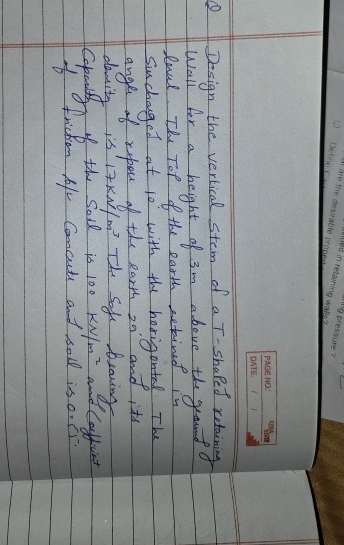 Q Design the vertical stem of a T-Shaped retaining
Wall for a height of 3m above the ground
level The Top of the earth retained is
Surcharged at 10 with the horizontal The
angle of repose of the earth 29. and its
density is 17 KN/m³ The Safe bearing
Capacity of the Soil is 100 KN/m² and Coefficient
of friction b/w Concrete and soil is 0.5.
PAGE NO:
DATE: / /
are the desirable
in retaining walls?
pressure?